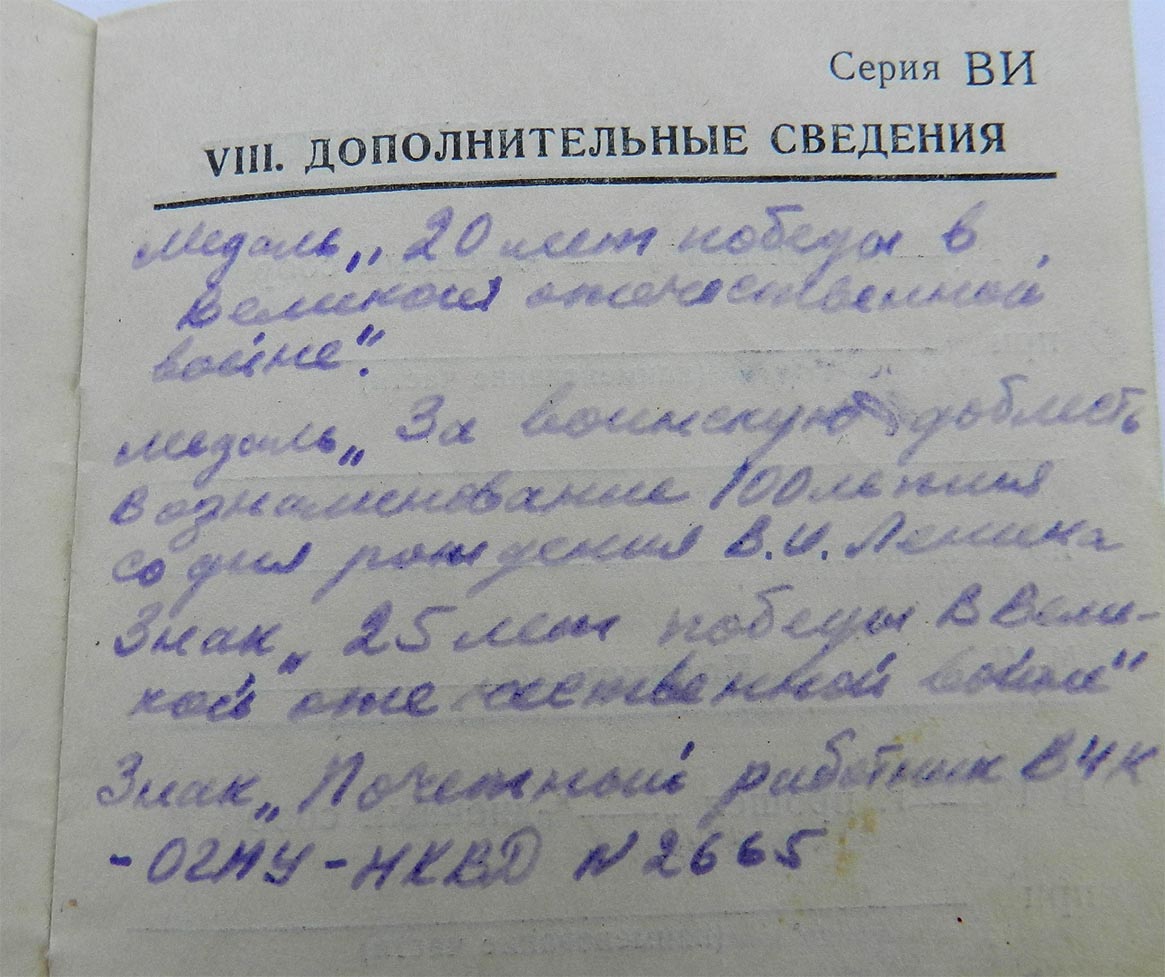 Серия ВИ
VIII. ДОПОЛНИТЕЛЬНЫЕ СВЕДЕНИЯ
Медаль „20 лет победы в
великой отечественной
войне".
медаль „За воинскую доблесть
в ознаменование 100летия
со дня рождения В.И. Ленина
Знак „25 лет победы в Вели-
кой отечественной войне"
Знак „Почетный работник ВЧК
-ОГПУ-НКВД N 2665